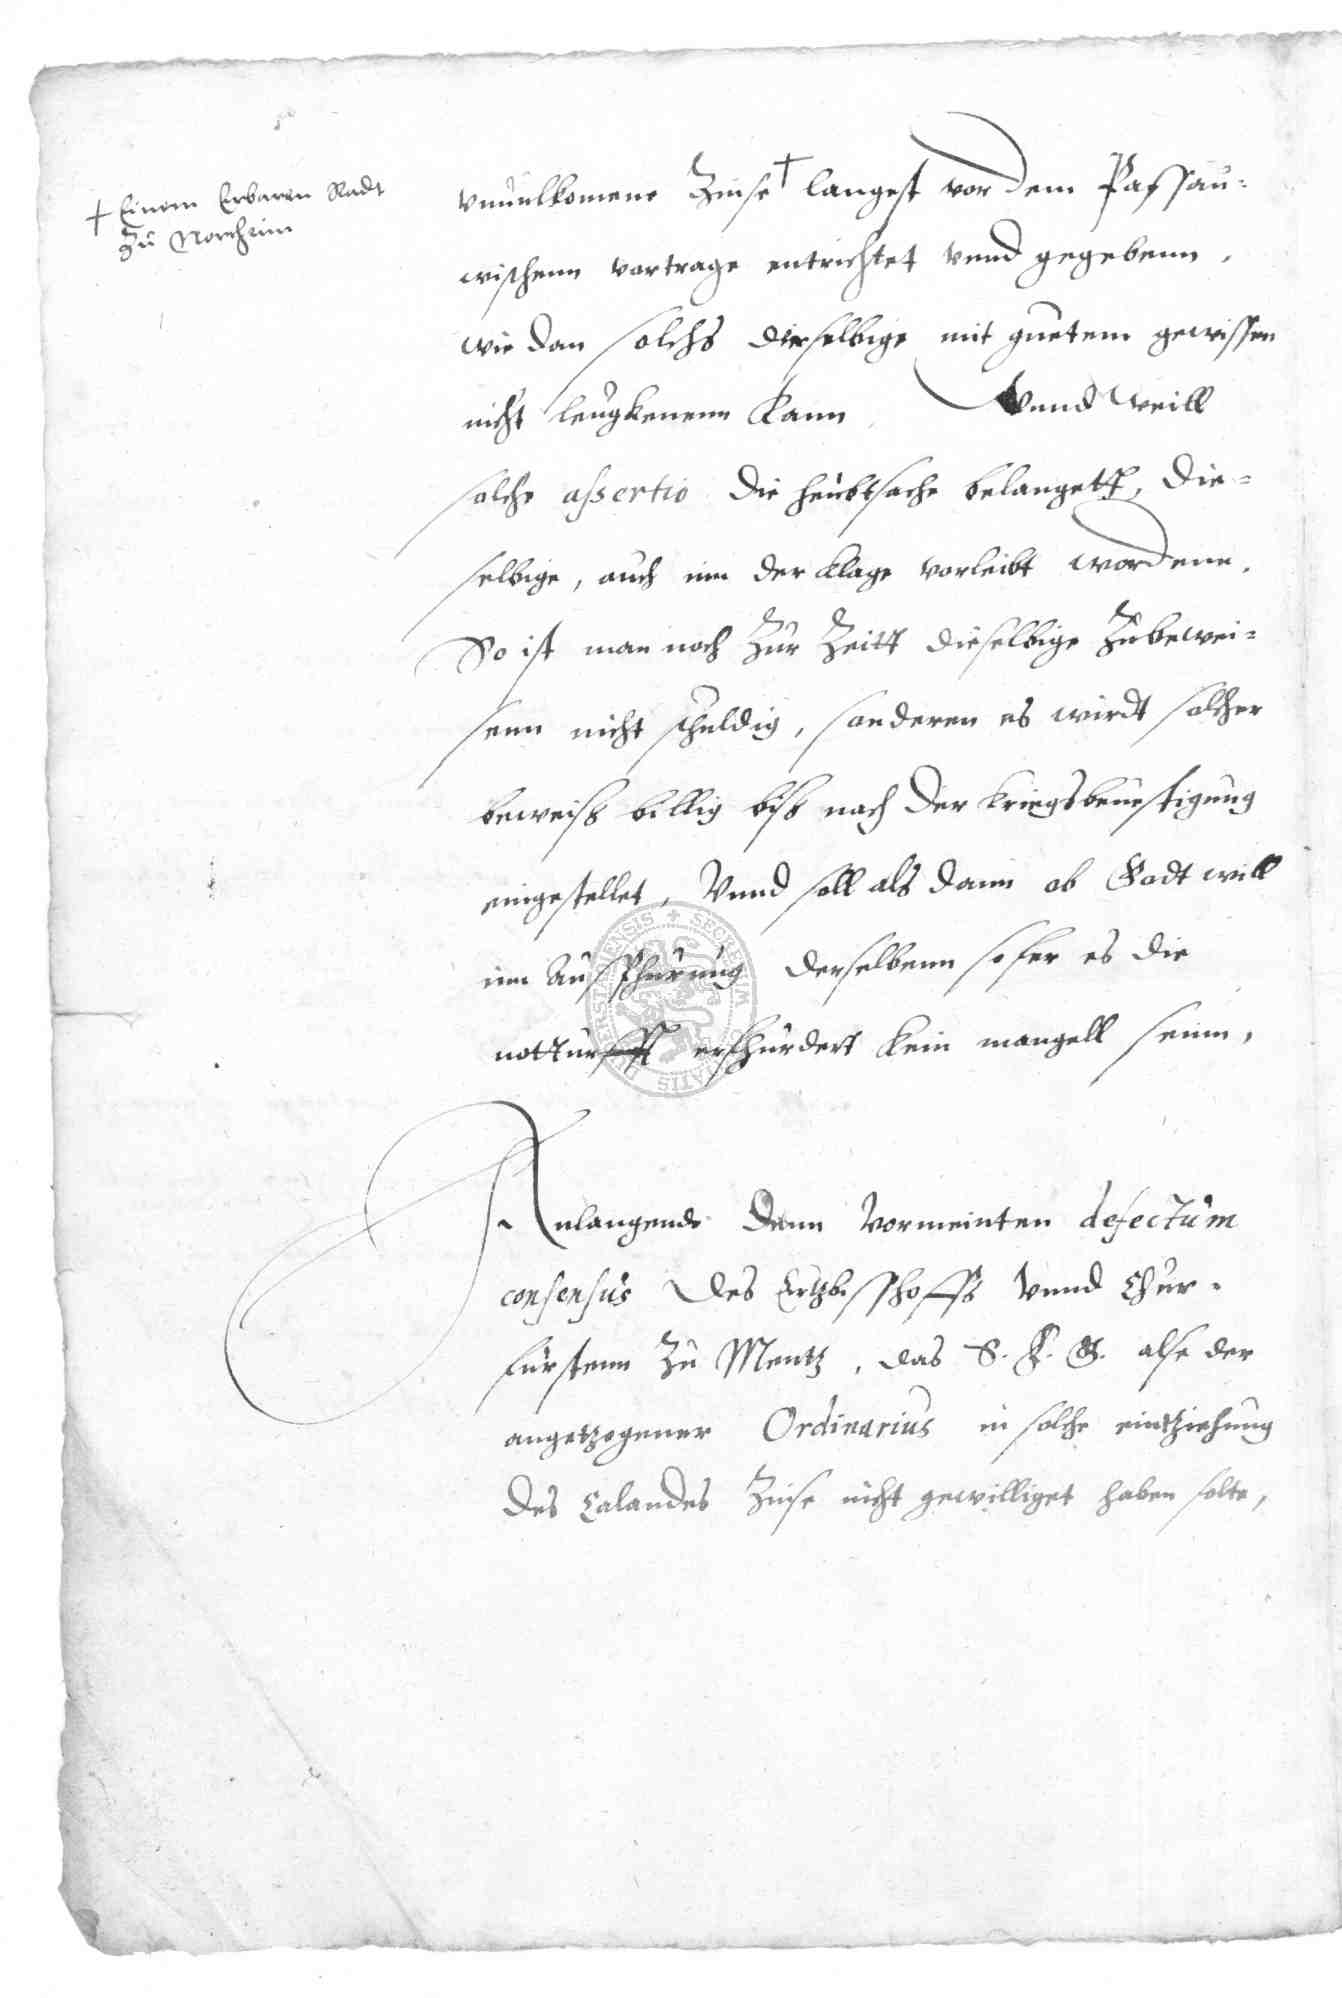 † Einem Erbaren Radt
zu Northeim
vnuulkomene Zinse † langest vor dem Passau-
wischenn vortrage entrichtet vnnd gegebenn,
wie dan solchs dieselbige mit guetem gewissen
nicht leugkenenn kann, Vnnd weill
solche assertio die heubtsache belangett, die-
selbige, auch inn der klage vorleibt wordenn,
So ist man noch zur Zeitt dieselbige zubewei-
senn nicht schuldig, sonderen es wirdt solcher
beweiß billig biß nach der kriegsbeuestigung
eingestellet, Vnnd soll als dann ob Gott will
inn Ausphurung derselbenn sofer es die
notturfft erfhurdert kein mangell seinn,
Anlangende denn Vormeinten defectum
consensus des Ertzbisschoffs vnnd Chur-
fursten zu Mentz, das S. F. G. alse der
angetzogener Ordinarius in solche eintziehung
des Calandes Zinse nicht gewilliget haben solte,
SECRETUM CIVITATIS DUDERSTADENSIS